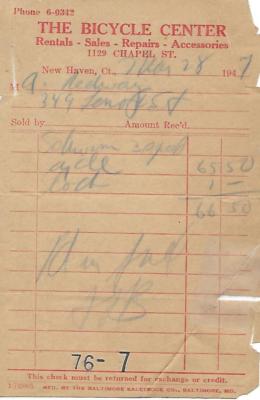 Phone 6-0342
THE BICYCLE CENTER
Rentals - Sales - Repairs - Accessories
1129 CHAPEL ST.
New Haven, Ct., Mar 28 1947
M A.
349 St
Sold by Amount Rec'd.
Schwinn
cycle 65 50
lock 1 —
66 50
76-7
This check must be returned for exchange or credit.
MFD. BY THE BALTIMORE SALESBOOK CO., BALTIMORE, MD.